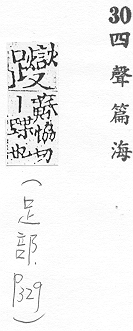 30 四聲篇海
蘇協切
丨蹀也
(足部. P329)